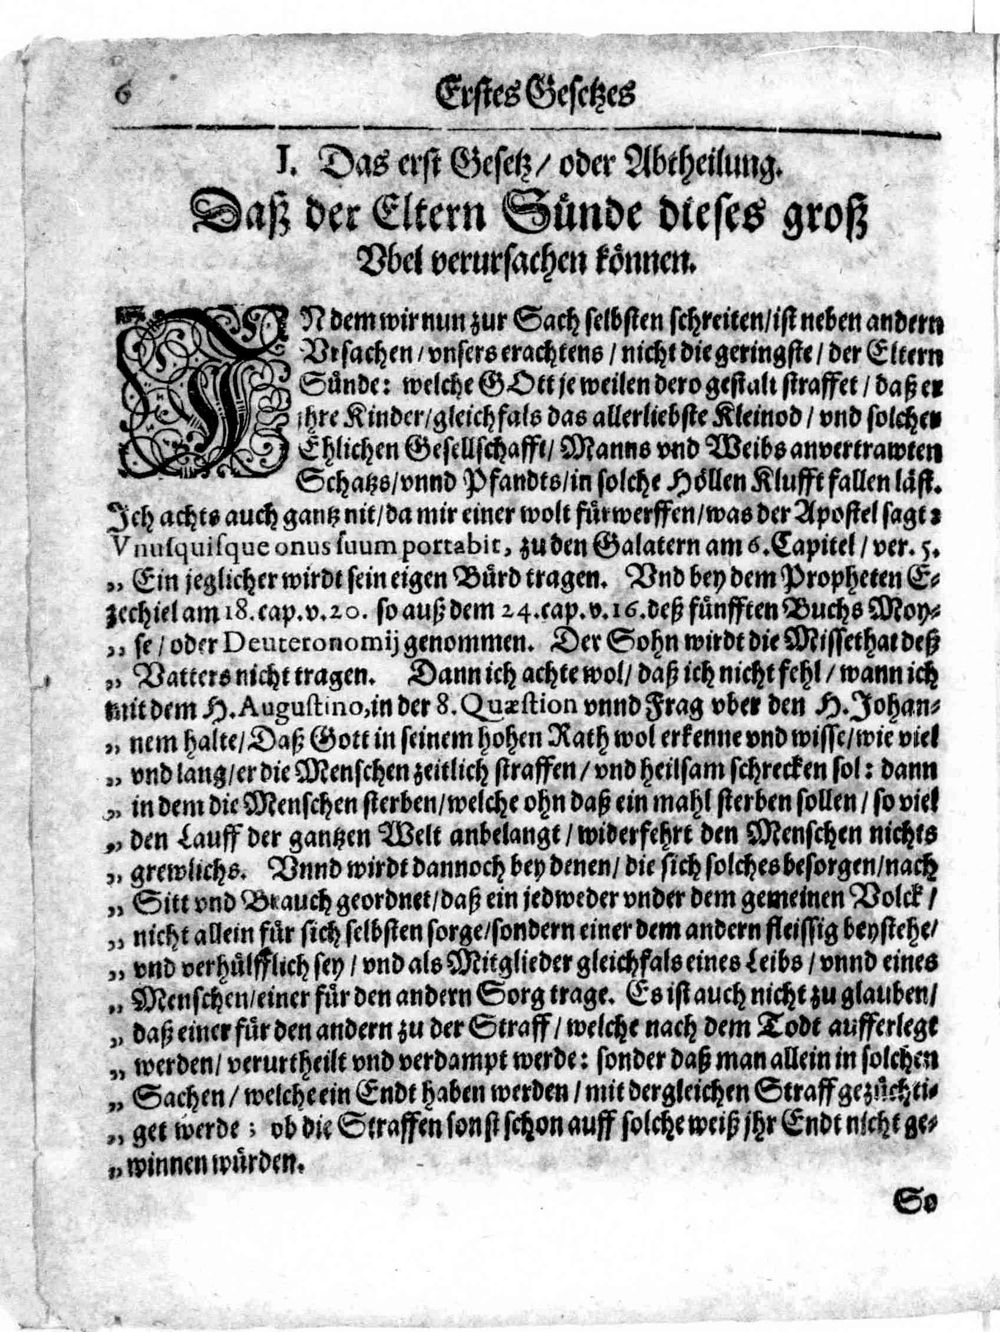 6 Erstes Gesetzes
I. Das erst Gesetz/ oder Abtheilung.
Daß der Eltern Sünde dieses groß
Vbel verursachen können.
IN dem wir nun zur Sach selbsten schreiten/ist neben andern
Vrsachen/vnsers erachtens/nicht die geringste/der Eltern
Sünde: welche GOtt je weilen dero gestalt straffet/daß er
jhre Kinder/gleichfals das allerliebste Kleinod/vnd solchen
Ehlichen Gesellschafft/Manns vnd Weibs anvertrawten
Schatzs/vnnd Pfandts/in solche Höllen Klufft fallen läst.
Ich achts auch gantz nit/da mir einer wolt fürwerffen/was der Apostel sagt:
Vnusquisque onus suum portabit, zu den Galatern am 6. Capitel/ver. 5.
„ Ein jeglicher wirdt sein eigen Bürd tragen. Vnd bey dem Propheten E-
zechiel am 18. cap. v. 20. so auß dem 24. cap. v. 16. deß fünfften Buchs Moy-
„ se/oder Deuteronomij genommen. Der Sohn wirdt die Missethat deß
„ Vatters nicht tragen. Dann ich achte wol/daß ich nicht fehl/wann ich
mit dem H. Augustino, in der 8. Quæstion vnnd Frag vber den H. Johan-
„ nem halte/Daß Gott in seinem hohen Rath wol erkenne vnd wisse/wie viel
„ vnd lang/er die Menschen zeitlich straffen/vnd heilsam schrecken sol: dann
„ in dem die Menschen sterben/welche ohn daß ein mahl sterben sollen/so viel
„ den Lauff der gantzen Welt anbelangt/widerfehrt den Menschen nichts
„ grewlichs. Vnnd wirdt dannoch bey denen/die sich solches besorgen/nach
„ Sitt vnd Brauch geordnet/daß ein jedweder vnder dem gemeinen Volck/
„ nicht allein für sich selbsten sorge/sondern einer dem andern fleissig beystehe/
„ vnd verhülfflich sey/vnd als Mitglieder gleichfals eines Leibs/vnnd eines
„ Menschen/einer für den andern Sorg trage. Es ist auch nicht zu glauben/
„ daß einer für den andern zu der Straff/welche nach dem Todt aufferlegt
„ werden/verurtheilt vnd verdampt werde: sonder daß man allein in solchen
„ Sachen/welche ein Endt haben werden/mit dergleichen Straff gezüchti-
„ get werde; ob die Straffen sonst schon auff solche weiß jhr Endt nicht ge-
„ winnen würden.
So